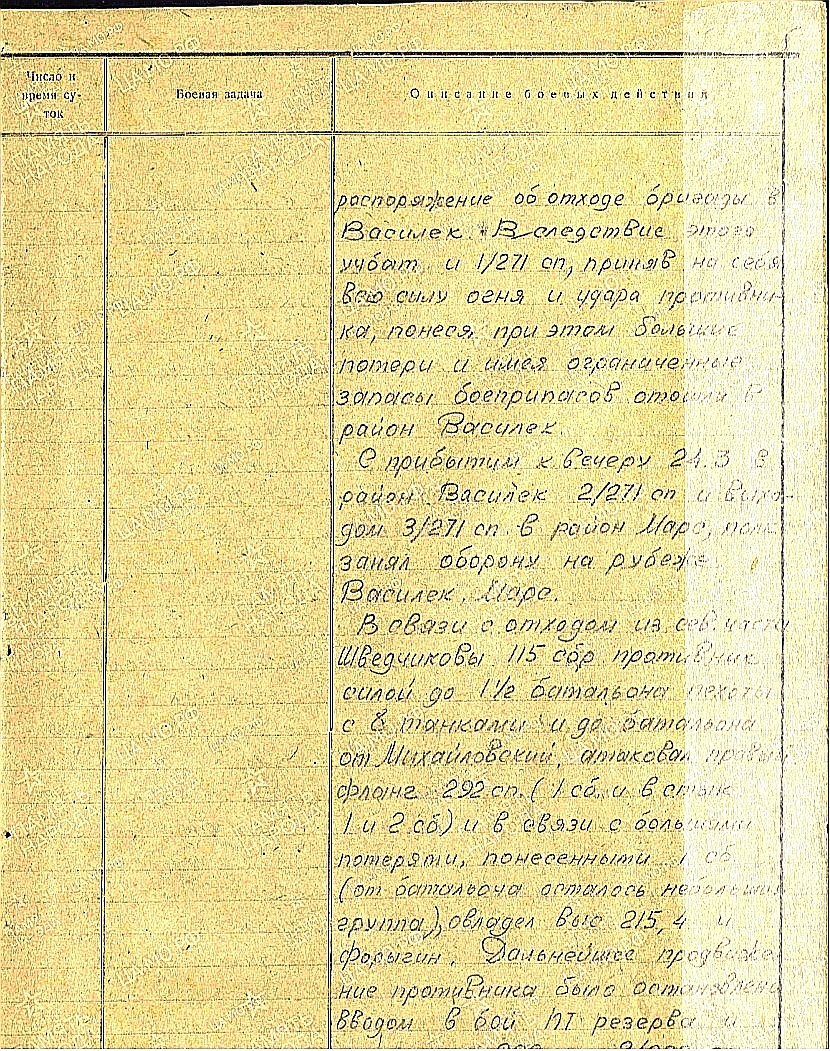 Число и
время су-
ток
Боевая задача
Описание боевых действий
распоряжение об отходе бригады в
Василек. Вследствие этого
учбат и 1/271 сп, приняв на себя
всю силу огня и удара противни-
ка, понеся при этом большие
потери и имея ограниченные
запасы боеприпасов отошли в
район Василек.
С прибытим к вечеру 24.3 в
район Василек 2/271 сп и выхо-
дом 3/271 сп в район Марс, полк
занял оборону на рубеже
Василек, Марс.
В связи с отходом из сев. части
Шведчиковы 115 сбр противник
силой до 1 1/2 батальона пехоты
с 8 танками и до батальона
от Михайловский, атаковал правый
фланг 292 сп. (1 сб. и в стык
1 и 2 сб) и в связи с большими
потерями, понесенными 1 сб
(от батальона осталось небольшая
группа), овладел выс 215,4 и
Форыгин. Дальнейшее продвиже-
ние противника было остановлено
вводом в бой ПТ резерва и